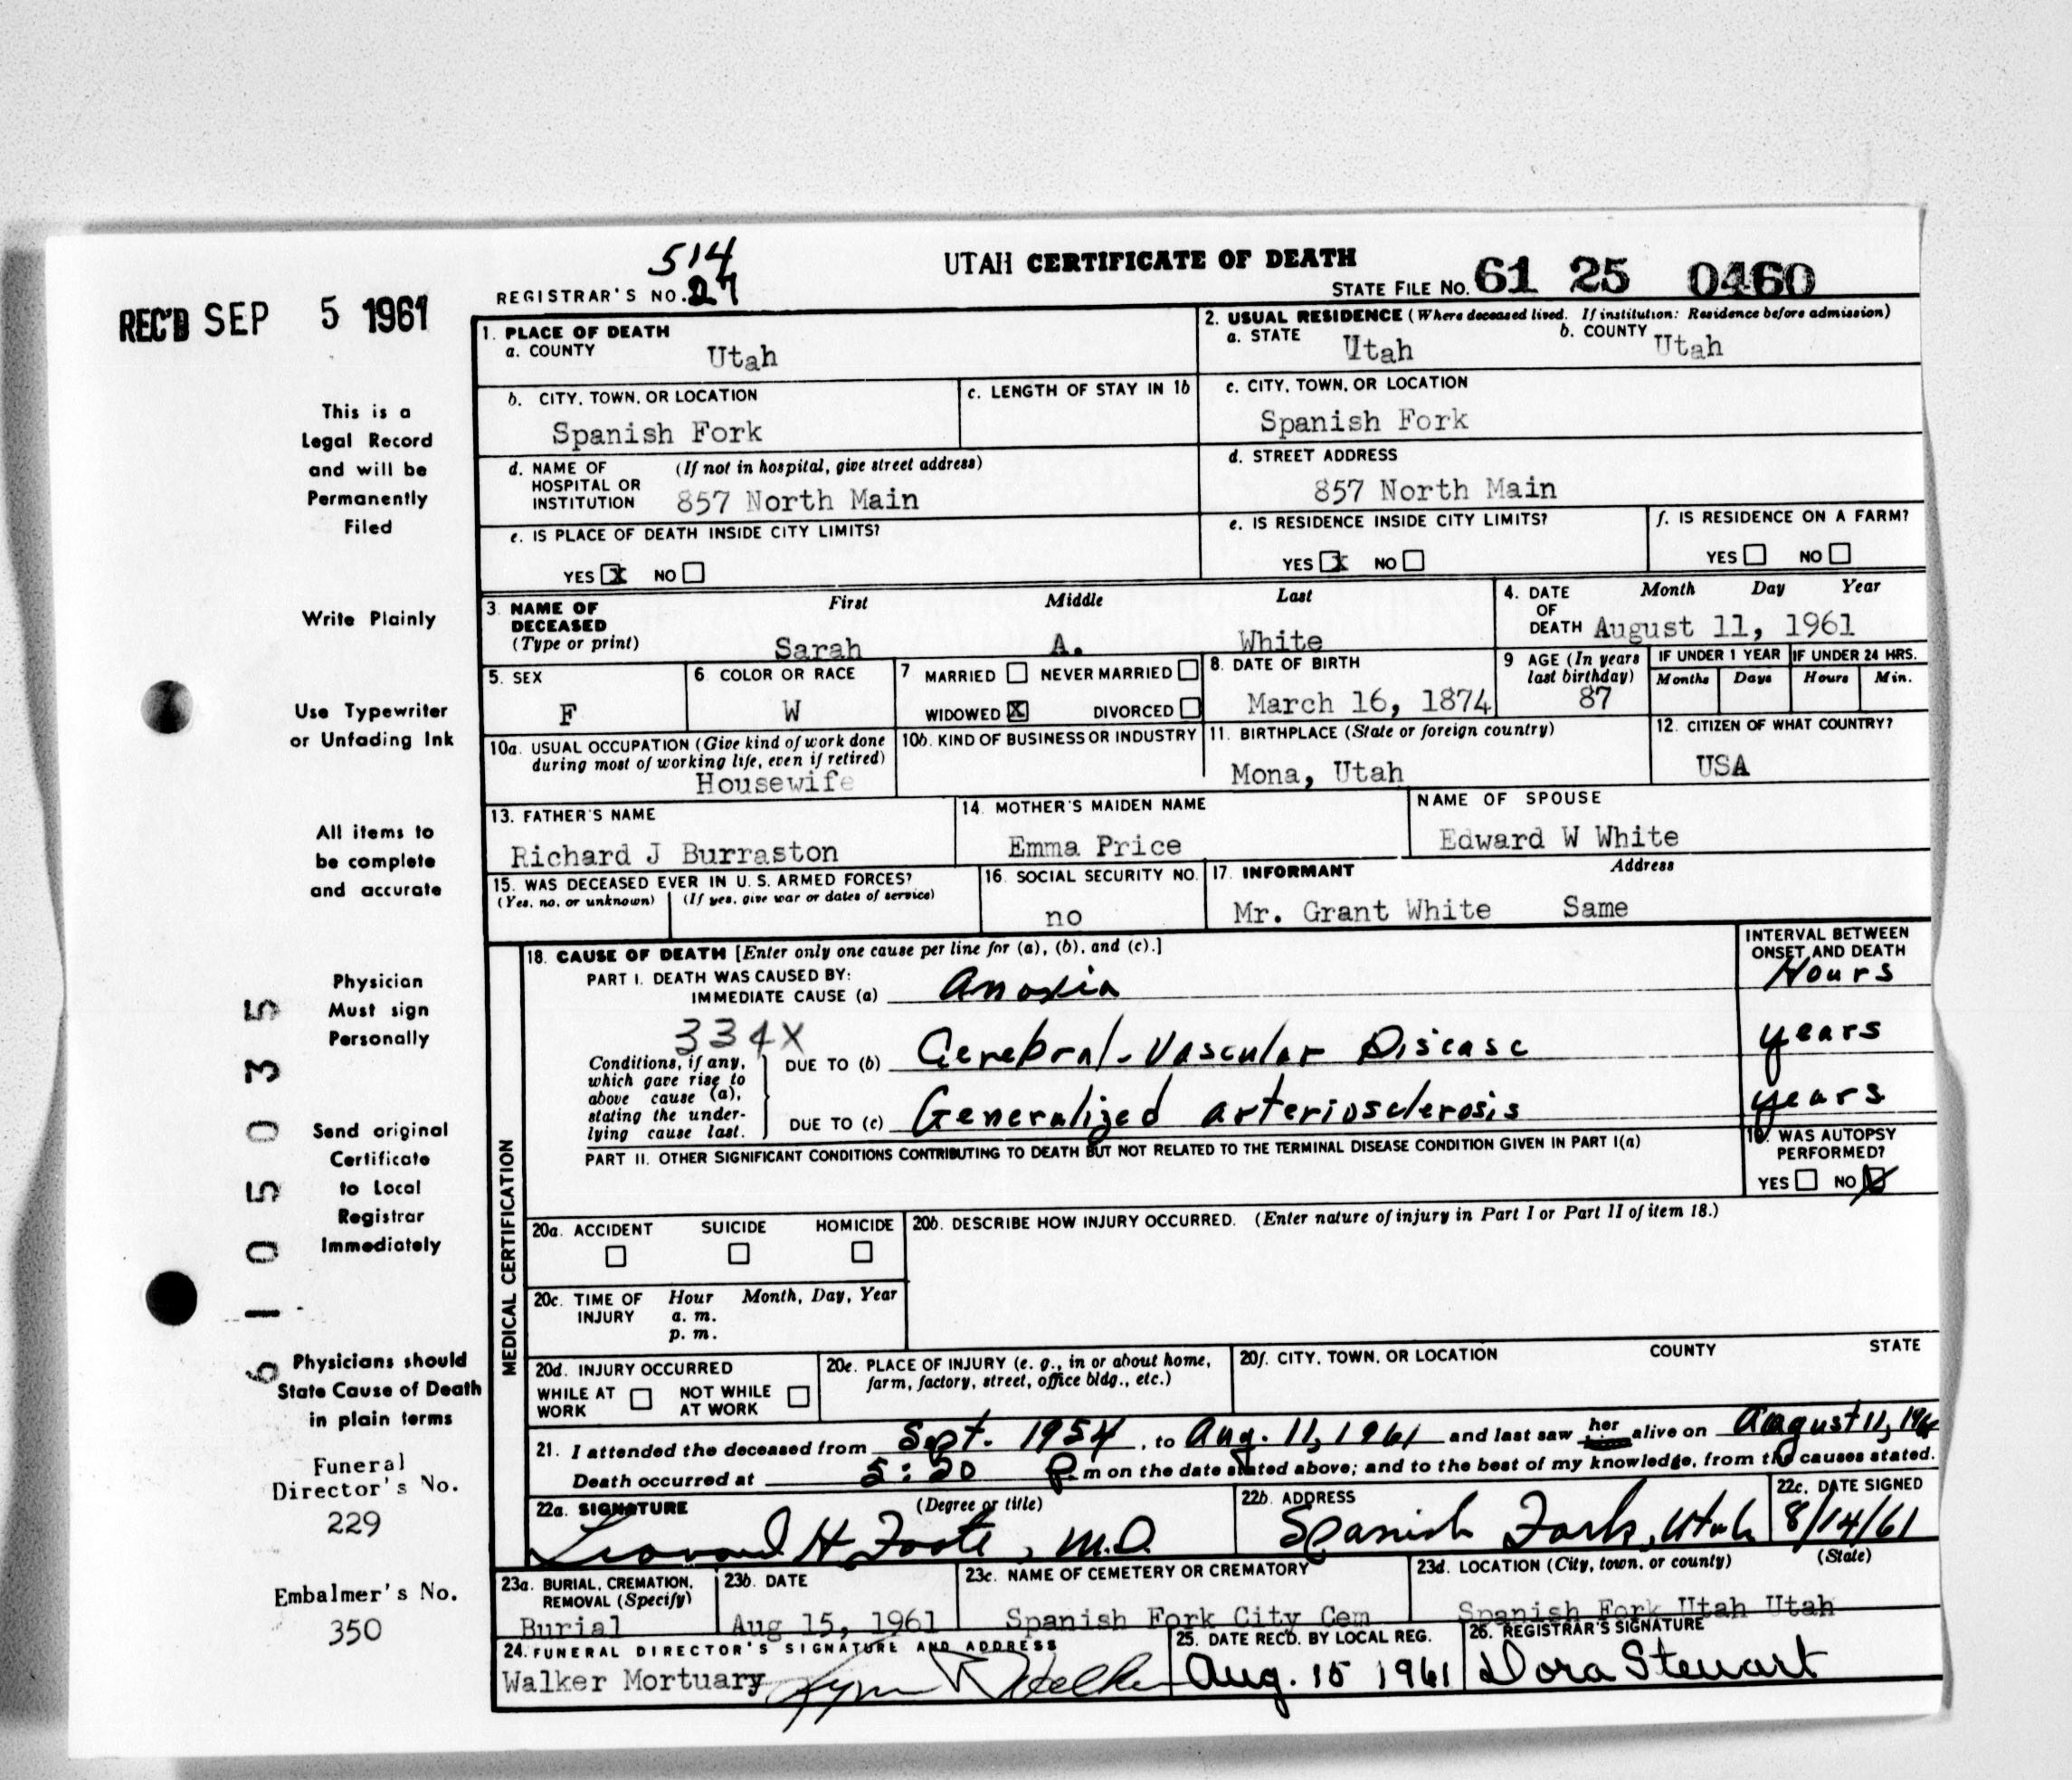 514
REGISTRAR'S NO. 27
UTAH CERTIFICATE OF DEATH
STATE FILE No. 61 25 0460
REC'D SEP 5 1961
This is a
Legal Record
and will be
Permanently
Filed
Write Plainly
Use Typewriter
or Unfading Ink
All items to
be complete
and accurate
Physician
Must sign
Personally
Send original
Certificate
to Local
Registrar
Immediately
Physicians should
State Cause of Death
in plain terms
Funeral
Director's No.
229
Embalmer's No.
350
61 05035
1. PLACE OF DEATH
a. COUNTY Utah
2. USUAL RESIDENCE (Where deceased lived. If institution: Residence before admission)
a. STATE Utah b. COUNTY Utah
b. CITY, TOWN, OR LOCATION
Spanish Fork
c. LENGTH OF STAY IN 1b
c. CITY, TOWN, OR LOCATION
Spanish Fork
d. NAME OF HOSPITAL OR INSTITUTION (If not in hospital, give street address)
857 North Main
d. STREET ADDRESS
857 North Main
e. IS PLACE OF DEATH INSIDE CITY LIMITS?
YES X NO
e. IS RESIDENCE INSIDE CITY LIMITS?
YES X NO
f. IS RESIDENCE ON A FARM?
YES NO
3. NAME OF DECEASED (Type or print)
First Middle Last
Sarah A. White
4. DATE OF DEATH Month Day Year
August 11, 1961
5. SEX
F
6. COLOR OR RACE
W
7 MARRIED NEVER MARRIED
WIDOWED X DIVORCED
8. DATE OF BIRTH
March 16, 1874
9 AGE (In years last birthday)
87
IF UNDER 1 YEAR
Months Days
IF UNDER 24 HRS.
Hours Min.
10a. USUAL OCCUPATION (Give kind of work done during most of working life, even if retired)
Housewife
10b. KIND OF BUSINESS OR INDUSTRY
11. BIRTHPLACE (State or foreign country)
Mona, Utah
12. CITIZEN OF WHAT COUNTRY?
USA
13. FATHER'S NAME
Richard J Burraston
14. MOTHER'S MAIDEN NAME
Emma Price
NAME OF SPOUSE
Edward W White
15. WAS DECEASED EVER IN U. S. ARMED FORCES?
(Yes, no, or unknown) (If yes, give war or dates of service)
16. SOCIAL SECURITY NO.
no
17. INFORMANT Address
Mr. Grant White Same
MEDICAL CERTIFICATION
18. CAUSE OF DEATH [Enter only one cause per line for (a), (b), and (c).]
INTERVAL BETWEEN ONSET AND DEATH
PART I. DEATH WAS CAUSED BY:
IMMEDIATE CAUSE (a) Anoxia Hours
334X
Conditions, if any, which gave rise to above cause (a), stating the underlying cause last.
DUE TO (b) Cerebral-Vascular Disease years
DUE TO (c) Generalized arteriosclerosis years
PART II. OTHER SIGNIFICANT CONDITIONS CONTRIBUTING TO DEATH BUT NOT RELATED TO THE TERMINAL DISEASE CONDITION GIVEN IN PART I(a)
19. WAS AUTOPSY PERFORMED?
YES NO X
20a. ACCIDENT SUICIDE HOMICIDE
20b. DESCRIBE HOW INJURY OCCURRED. (Enter nature of injury in Part I or Part II of item 18.)
20c. TIME OF INJURY Hour Month, Day, Year
a. m.
p. m.
20d. INJURY OCCURRED
WHILE AT WORK NOT WHILE AT WORK
20e. PLACE OF INJURY (e. g., in or about home, farm, factory, street, office bldg., etc.)
20f. CITY, TOWN, OR LOCATION COUNTY STATE
21. I attended the deceased from Sept. 1954, to Aug. 11, 1961 and last saw her alive on August 11, 1961
Death occurred at 5:20 P. m on the date stated above; and to the best of my knowledge, from the causes stated.
22a. SIGNATURE (Degree or title)
Leonard H. Foote, M.D.
22b. ADDRESS
Spanish Fork, Utah
22c. DATE SIGNED
8/14/61
23a. BURIAL, CREMATION, REMOVAL (Specify)
Burial
23b. DATE
Aug 15, 1961
23c. NAME OF CEMETERY OR CREMATORY
Spanish Fork City Cem
23d. LOCATION (City, town, or county) (State)
Spanish Fork Utah Utah
24. FUNERAL DIRECTOR'S SIGNATURE AND ADDRESS
Walker Mortuary
25. DATE RECD. BY LOCAL REG.
Aug. 15 1961
26. REGISTRAR'S SIGNATURE
Dora Stewart